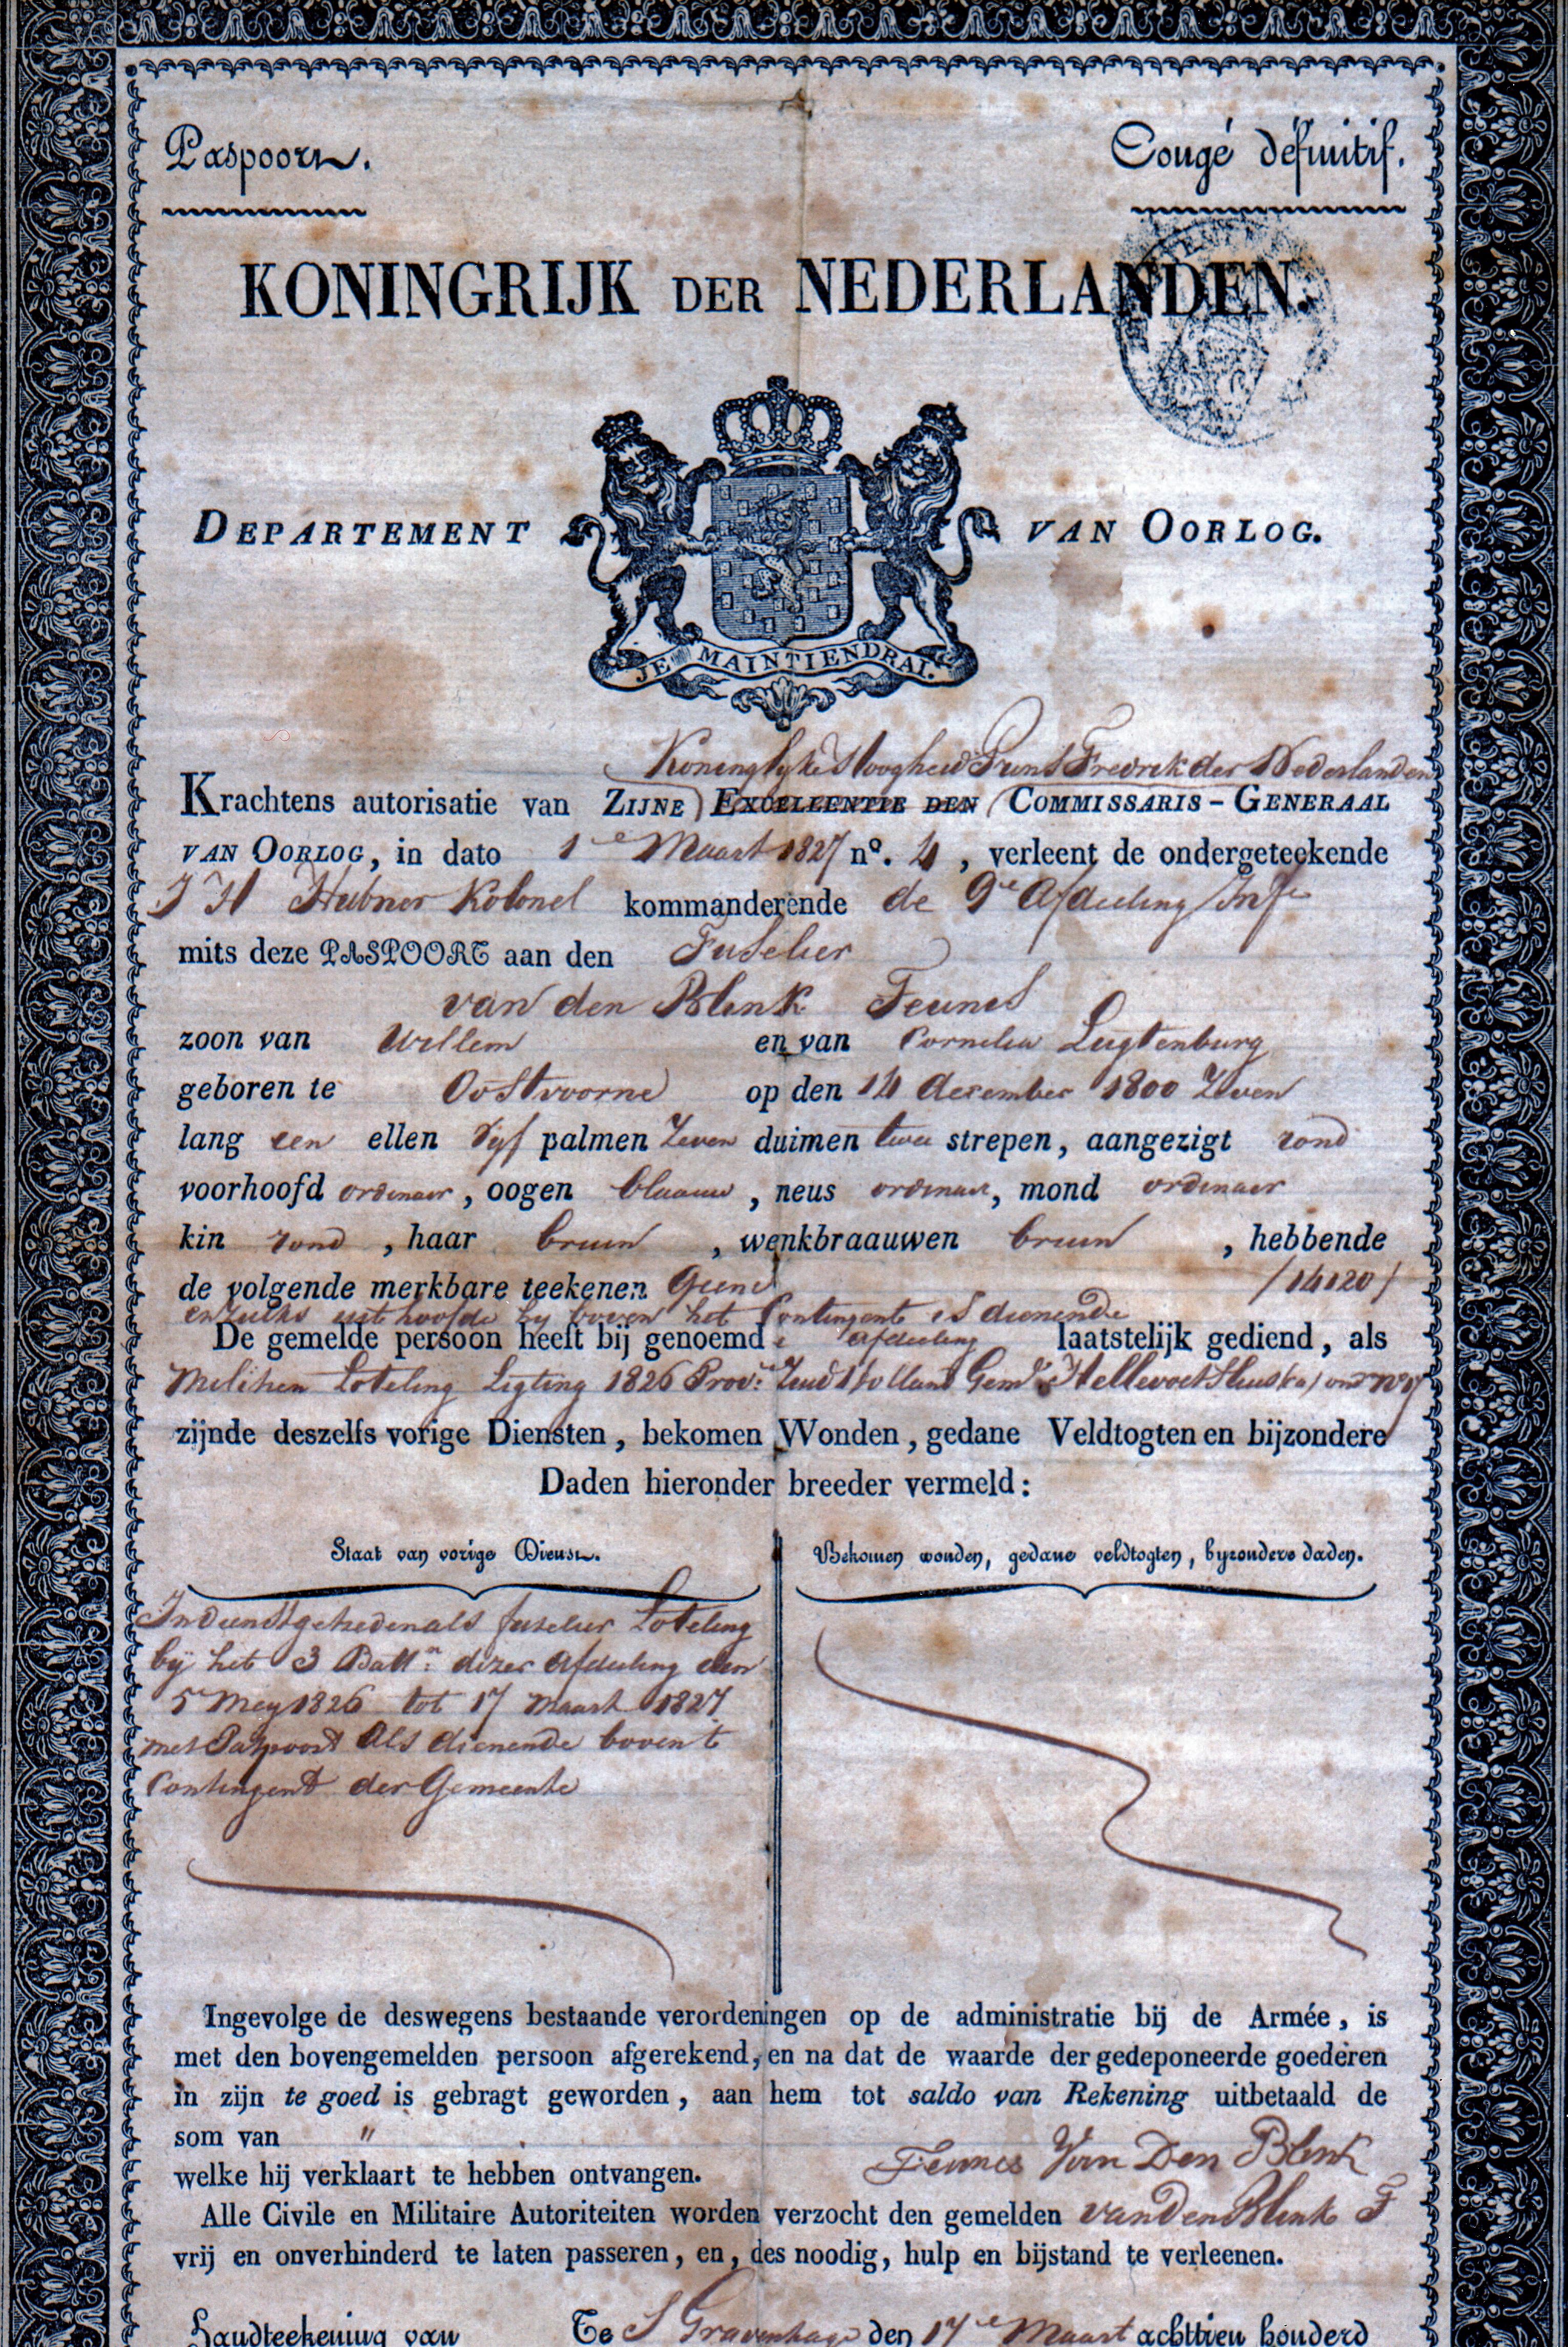 Paspoort.
Congé définitif.
KONINGRIJK DER NEDERLANDEN.
DEPARTEMENT VAN OORLOG.
JE MAINTIENDRAI.
Koninglyke Hoogheid Prins Fredrik der Nederlanden
Krachtens autorisatie van ZIJNE EXCELLENTIE DEN COMMISSARIS-GENERAAL
VAN OORLOG, in dato 1e Maart 1827 no. 4, verleent de ondergeteekende
J H Hubner Kolonel kommanderende de 9e Afdeeling Infe
mits deze PASPOORT aan den Fuselier
van den Blink Teunis
zoon van Willem en van Cornelia Lugtenburg
geboren te Oostvoorne op den 14 december 1800 Zeven
lang een ellen vyf palmen Zeven duimen twee strepen, aangezigt rond
voorhoofd ordinair, oogen blaauw, neus ordinair, mond ordinair
kin rond, haar bruin, wenkbraauwen bruin, hebbende
de volgende merkbare teekenen Geene /14120/
en zulks uit hoofde hy boven het Contingent is dienende
De gemelde persoon heeft bij genoemde afdeeling laatstelijk gediend, als
Milicien Loteling Ligting 1826 Prov: Zuid Holland Geme Hellevoetsluis
zijnde deszelfs vorige Diensten, bekomen Wonden, gedane Veldtogten en bijzondere
Daden hieronder breeder vermeld:
Staat van vorige Dienst.
In dienst getreden als fuselier Loteling
by het 3 Battn: dezer Afdeeling den
5e Mey 1826 tot 17 maart 1827
met Paspoort Als dienende boven t
Contingent der Gemeente
Bekomen wonden, gedane veldtogten, byzondere daden.
Ingevolge de deswegens bestaande verordeningen op de administratie bij de Armée, is
met den bovengemelden persoon afgerekend, en na dat de waarde der gedeponeerde goederen
in zijn te goed is gebragt geworden, aan hem tot saldo van Rekening uitbetaald de
som van "
welke hij verklaart te hebben ontvangen. Teunis Van Den Blink
Alle Civile en Militaire Autoriteiten worden verzocht den gemelden van Den Blink T
vrij en onverhinderd te laten passeren, en, des noodig, hulp en bijstand te verleenen.
Handteekening van Te S Gravenhage den 17e Maart achttien honderd